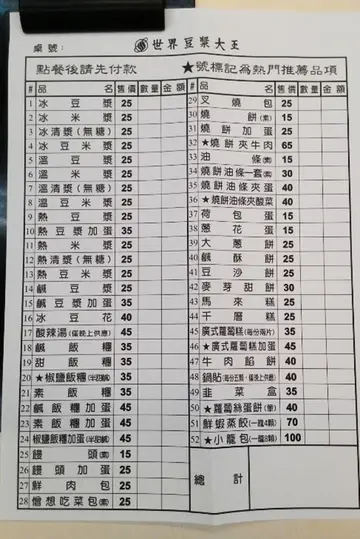 桌號： 世界豆漿大王
點餐後請先付款 ★號標記為熱門推薦品項
# 品名 售價 數量 金額
1 冰豆漿 25
2 冰米漿 25
3 冰清漿（無糖） 25
4 冰豆米漿 25
5 溫豆漿 25
6 溫米漿 25
7 溫清漿（無糖） 25
8 溫豆米漿 25
9 熱豆漿 25
10 熱豆漿加蛋 35
11 熱米漿 25
12 熱清漿（無糖） 25
13 熱豆米漿 25
14 鹹豆漿 25
15 鹹豆漿加蛋 35
16 冰豆花 40
17 酸辣湯(僅晚上供應) 45
18 鹹飯糰 35
19 甜飯糰 35
20 ★椒鹽飯糰(半甜鹹) 35
21 素飯糰 35
22 鹹飯糰加蛋 45
23 素飯糰加蛋 45
24 椒鹽飯糰加蛋(半甜鹹) 45
25 饅頭(素) 15
26 饅頭加蛋 25
27 鮮肉包 25
28 僧想吃菜包(素) 25
# 品名 售價 數量 金額
29 叉燒包 25
30 燒餅(素) 15
31 燒餅加蛋 25
32 ★燒餅夾牛肉 65
33 油條(素) 15
34 燒餅油條一套(素) 30
35 燒餅油條夾蛋 40
36 ★燒餅油條夾酸菜 40
37 荷包蛋 15
38 蔥花蛋 15
39 大蔥餅 25
40 鹹酥餅 25
41 豆沙餅 25
42 麥芽甜餅 30
43 馬來糕 25
44 千層糕 25
45 廣式蘿蔔糕(每份兩片) 35
46 ★廣式蘿蔔糕加蛋 45
47 牛肉餡餅 40
48 鍋貼(每份五顆，僅晚上供應) 40
49 韭菜盒 35
50 ★蘿蔔絲蛋餅(葷) 40
51 鮮蝦蒸餃(一籠4顆) 70
52 ★小籠包(一籠8顆) 100
總計